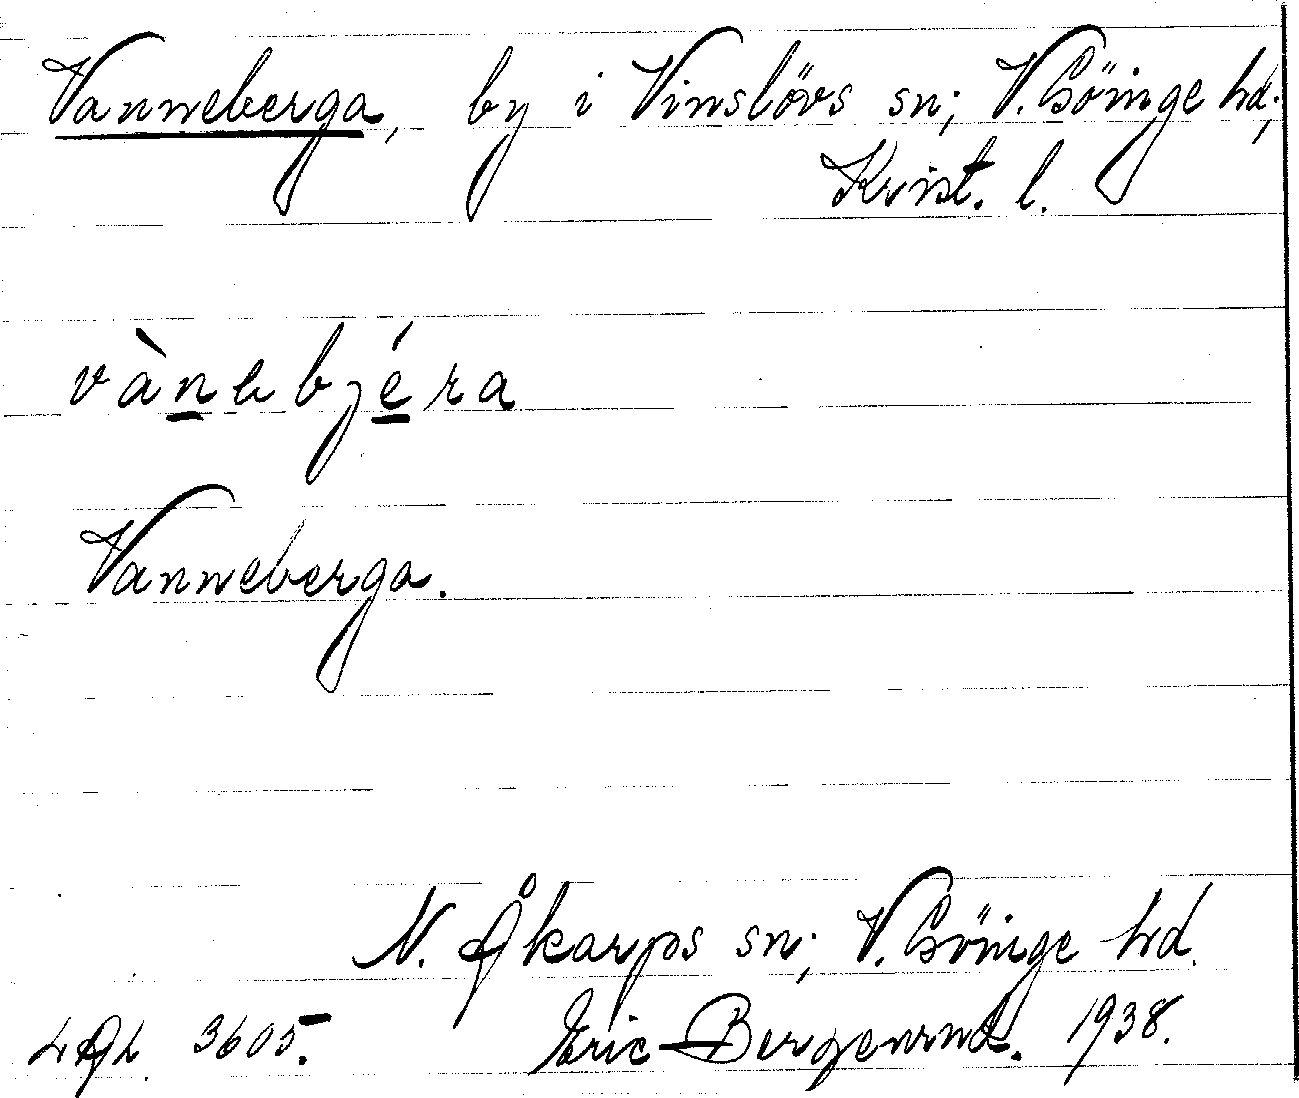 Vanneberga, by i Vinslövs sn; V. Göinge hd;
Krist. l.
vànebjéra
Vanneberga.
N. Åkarps sn; V. Göinge hd.
LAL. 3605. Eric Bergenrud. 1938.